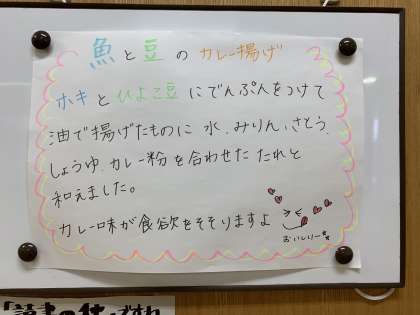 魚と豆のカレー揚げ
ホキとひよこ豆にでんぷんをつけて
油で揚げたものに 水、みりん、さとう、
しょうゆ、カレー粉を合わせた たれと
和えました。
カレー味が食欲をそそりますよ
おいしいー